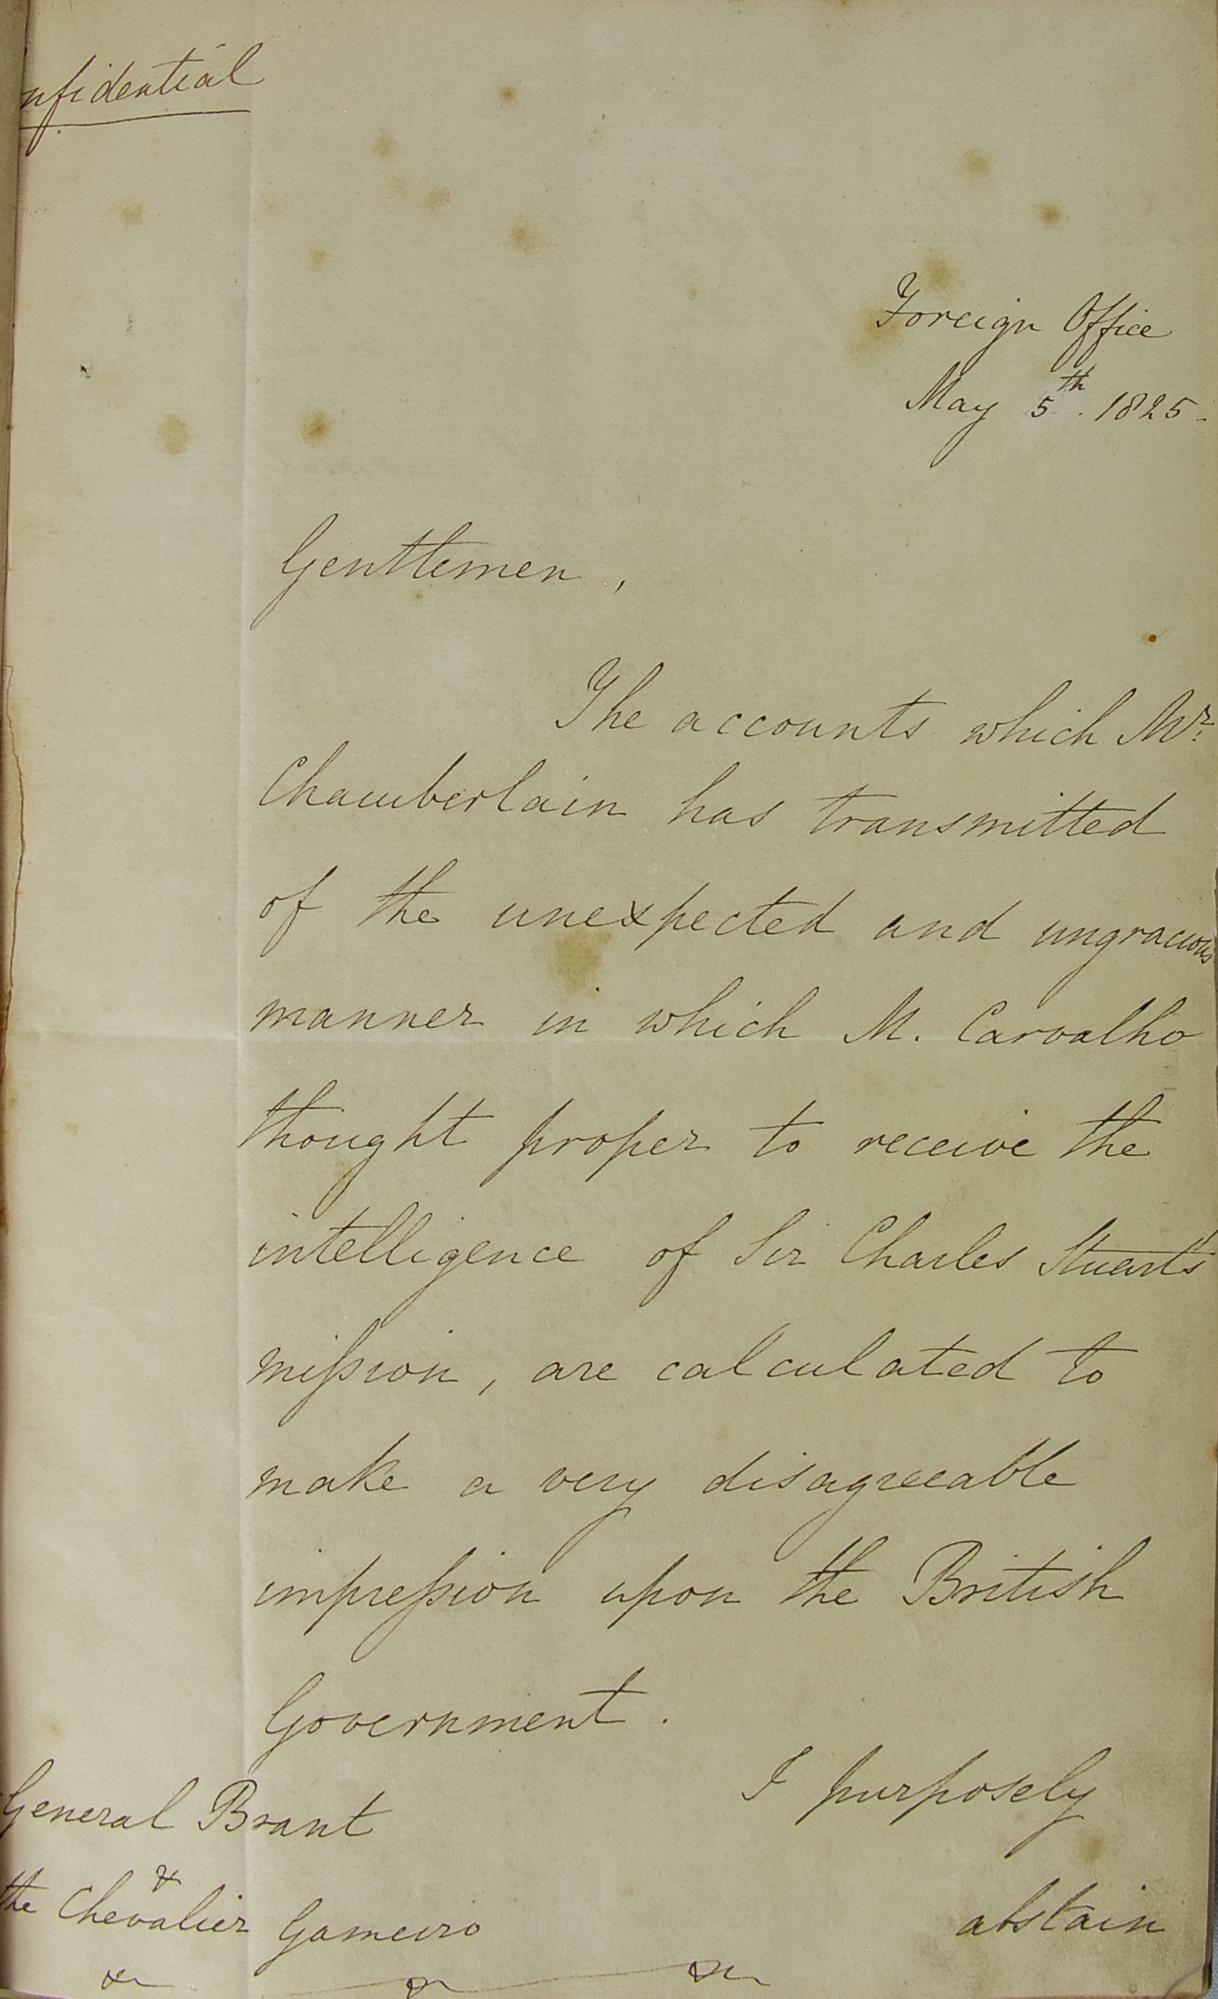 nfidential
Foreign Office
May 5th. 1825-
Gentlemen,
The accounts which Mr.
Chamberlain has transmitted
of the unexpected and ungracious
manner in which M. Carvalho
thought proper to receive the
intelligence of Sir Charles Stuart's
mission, are calculated to
make a very disagreeable
impression upon the British
Government.
I purposely
abstain
General Brant
&
the Chevalier Gameiro